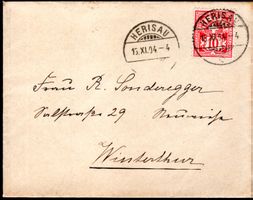 HERISAU
15.XI.94-4
HERISAU
10
Frau R. Sonderegger
29
Winterthur